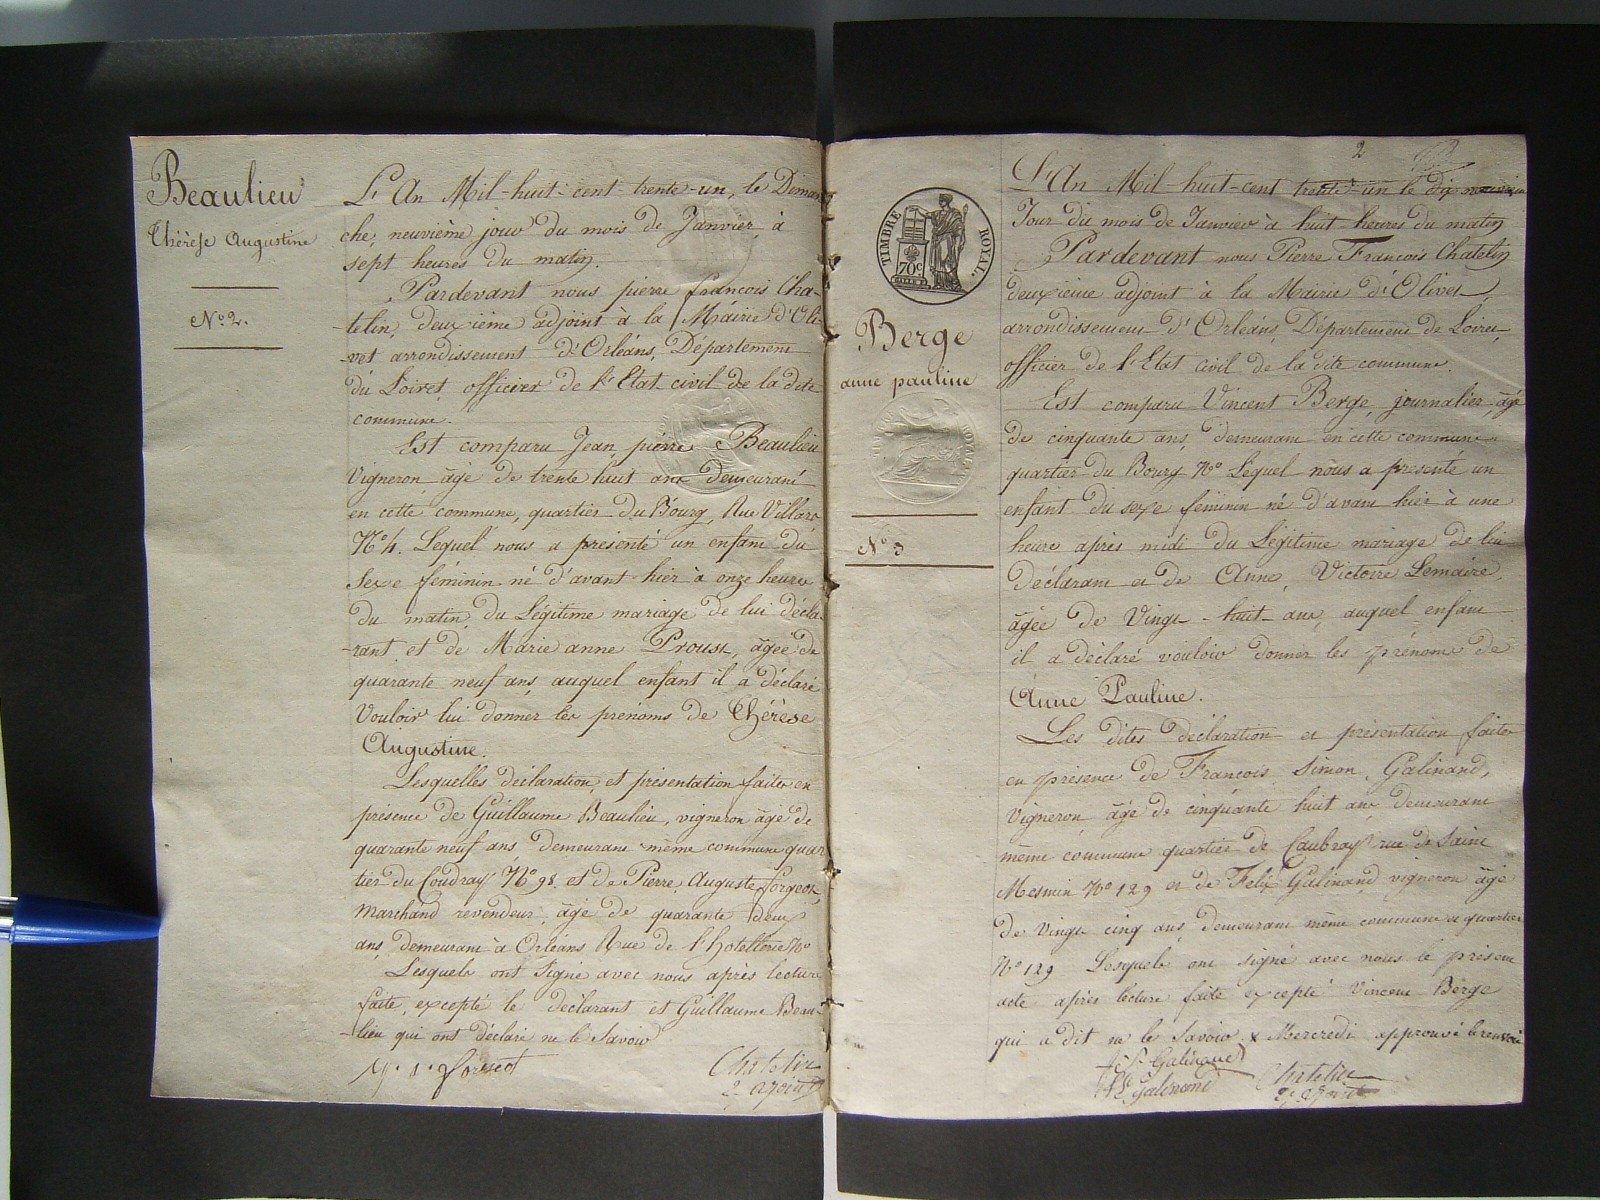 Beaulieu
Thérèse Augustine
N° 2.
L'An Mil-huit-cent-trente-un, le Diman
che, neuvième jour du mois de Janvier, à
sept heures du matin.
Pardevant nous pierre françois Cha-
-telin, deuxième adjoint à la Mairie d'Oli-
-vet arrondissement d'Orléans, Département
du Loiret, officier de l'Etat civil de la dite
commune.
Est comparu Jean pierre Beaulieu
Vigneron âgé de trente huit ans demeurant
en cette commune, quartier du Bourg, Rue Villars
N° 4. Lequel nous a présenté un enfant du
Sexe féminin né d'avant-hier à onze heures
du matin, du Légitime mariage de lui décla-
-rant et de Marie anne Proust, âgée de
quarante neuf ans, auquel enfant il a déclaré
Vouloir lui donner les prénoms de Thérèse
Augustine.
Lesquelles déclaration et présentation faites en
présence de Guillaume Beaulieu, vigneron âgé de
quarante neuf ans demeurant même commune quar
tier du Coudray N° 98. et de Pierre Auguste forgeot
Marchand revendeur, âgé de quarante deux
ans, demeurant à Orléans Rue de l'hotellerie N°
Lesquels ont Signé avec nous après lecture
faite, excepté le déclarant et Guillaume Beau-
-lieu qui ont déclaré ne le Savoir
Chatelin
2e adjoint
2
TIMBRE ROYAL.
70c
Berge
anne pauline
N° 3
L'An Mil-huit-cent trente-un le dix neuvième
Jour du mois de Janvier à huit heures du matin
Pardevant nous Pierre François Chatelin
deuxième adjoint à la Mairie d'Olivet,
arrondissement d'Orléans, Département de Loiret,
officier de l'Etat civil de la dite commune.
Est comparu Vincent Berge, journalier, âgé
de cinquante ans, demeurant en cette commune
quartier du Bourg N° Lequel nous a présenté un
enfant du sexe féminin né d'avant hier à une
heure après midi du Légitime mariage de lui
Déclarant et de Anne Victoire Lemaire
âgée de Vingt-huit-ans, auquel enfant
il a déclaré vouloir donner les prénoms de
Anne Pauline.
Les dites déclaration et présentation faites
en présence de François Simon Galinand,
Vigneron âgé de cinquante huit ans demeurant
même commune quartier de Caubray rue de Saint
Mesmin N° 129 et de Felix Galinand vigneron âgé
de Vingt cinq ans, demeurant même commune et quartier
N° 129 Lesquels ont signé avec nous le présent
acte après lecture faite excepté Vincent Berge
qui a dit ne le Savoir x Mercredi approuvé le renvoi
Galinand
Galinand
Chatelin
2e adjoint